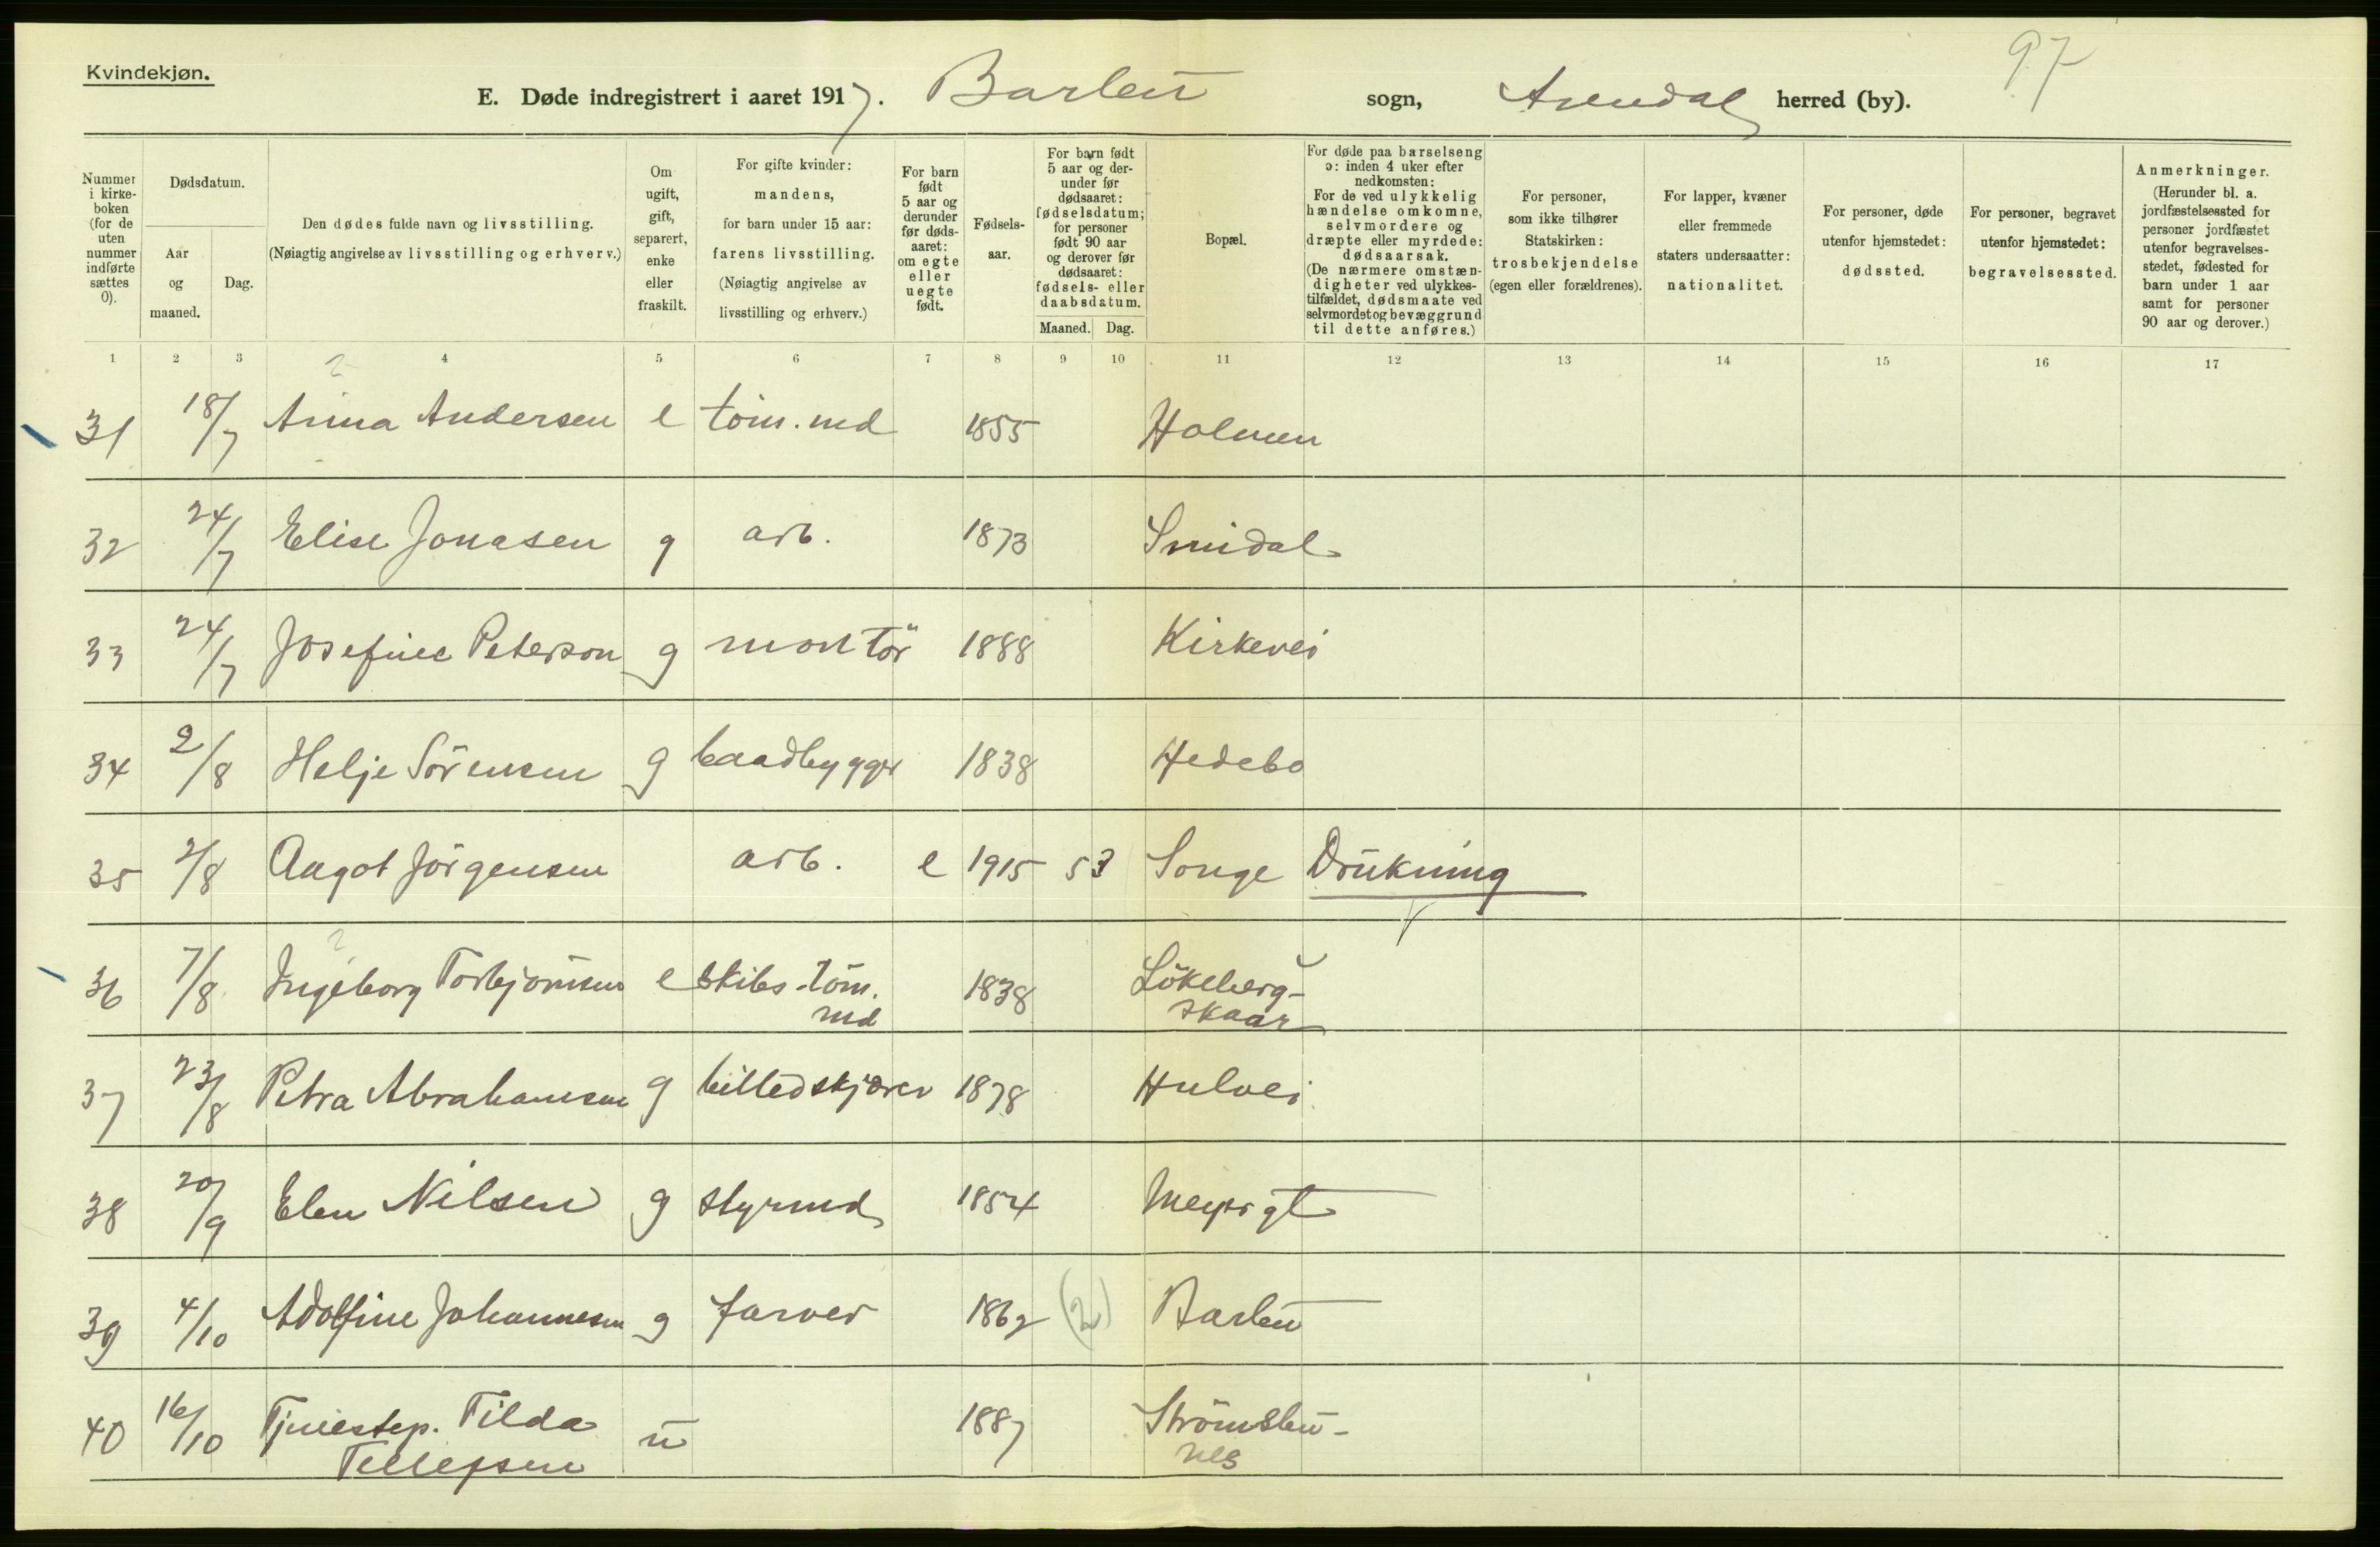 Kvindekjøn.
97
E. Døde indregistrert i aaret 1917. Barbu sogn, Arendal herred (by).
Nummer i kirkeboken (for de uten nummer indførte sættes 0).
Dødsdatum.
Aar og maaned.
Dag.
Den dødes fulde navn og livsstilling.
(Nøiagtig angivelse av livsstilling og erhverv.)
Om ugift, gift, separert, enke eller fraskilt.
For gifte kvinder: mandens, for barn under 15 aar: farens livsstilling. (Nøiagtig angivelse av livsstilling og erhverv.)
For barn født 5 aar og derunder før dødsaaret: om egte eller uegte født.
Fødselsaar.
For barn født 5 aar og derunder før dødsaaret: fødselsdatum; for personer født 90 aar og derover før dødsaaret: fødsels- eller daabsdatum.
Maaned. Dag.
Bopæl.
For døde paa barselseng ɔ: inden 4 uker efter nedkomsten: For de ved ulykkelig hændelse omkomne, selvmordere og dræpte eller myrdede: dødsaarsak. (De nærmere omstændigheter ved ulykkestilfældet, dødsmaate ved selvmordet og bevæggrund til dette anføres.)
For personer, som ikke tilhører Statskirken: trosbekjendelse (egen eller forældrenes).
For lapper, kvæner eller fremmede staters undersaatter: nationalitet.
For personer, døde utenfor hjemstedet: dødssted.
For personer, begravet utenfor hjemstedet: begravelsessted.
Anmerkninger. (Herunder bl. a. jordfæstelsessted for personer jordfæstet utenfor begravelsesstedet, fødested for barn under 1 aar samt for personer 90 aar og derover.)
1 2 3 4 5 6 7 8 9 10 11 12 13 14 15 16 17
31 18/7 Anna Andersen e töm.md 1855 Holmen
32 24/7 Elise Jonasen g arb. 1873 Smidal
33 24/7 Josefine Peterson g montör 1888 Kirkevei
34 2/8 Helje Sörensen g baadbygger 1838 Hedebo
35 2/8 Aagot Jörgensen arb. e 1915 5 3 Songe Drukning
36 7/8 Ingeborg Torbjörnsen e skibs-töm. 1838 Lökeberg-
md skaar
37 23/8 Petra Abrahamsen g billedskjærer 1878 Hulvei
38 20/9 Elen Nilsen g styrmd 1854
39 4/10 Adolfine Johannesen g farver 1862 (2) Barbu
40 16/10 Tjenestep. Tilda u 1887 Strömsbu-
Tellefsen nes